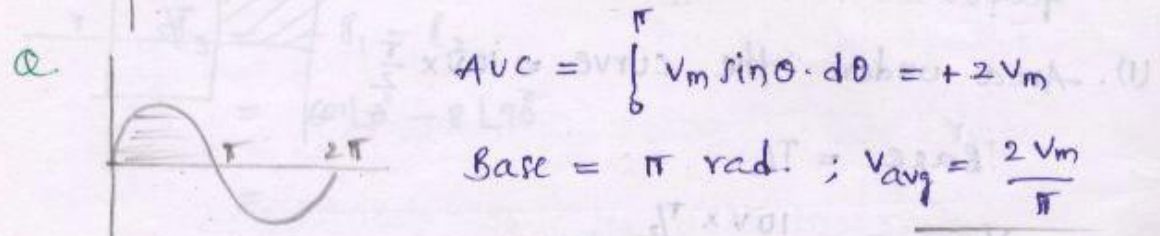 Q. AUC = ∫₀^π Vm sinθ. dθ = + 2Vm
π 2π
Base = π rad. ; Vavg = 2Vm/π